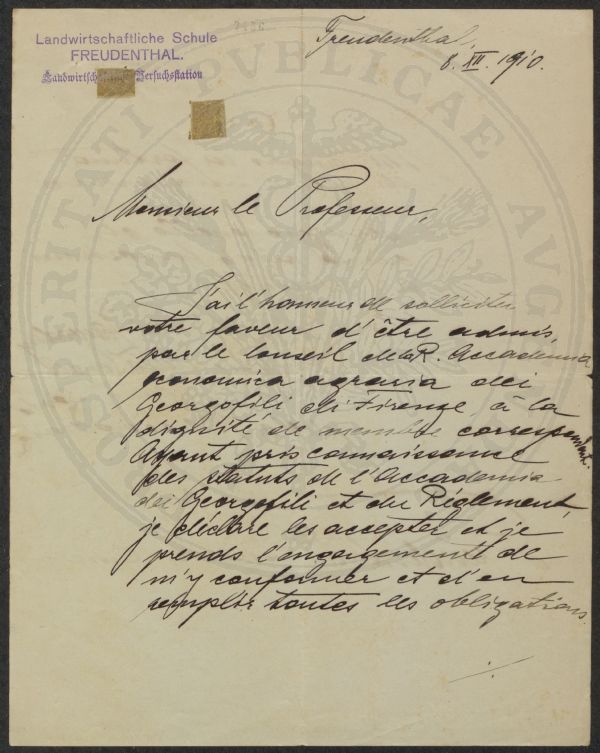 Landwirtschaftliche Schule
FREUDENTHAL.
Landwirtsch. Versuchsstation
Freudenthal,
8. XII. 1910.
Monsieur le Professeur,
J'ai l'honneur de solliciter
votre faveur d'être admis,
par le Conseil de la R. Accademia
economica agraria dei
Georgofili di Firenze, à la
dignité de membre correspondant.
Ayant pris connaissance
des statuts de l'Accademia
dei Georgofili et du Réglement,
je déclare les accepter et je
prends l'engagement de
m'y conformer et d'en
remplir toutes les obligations.
PROSPERITATI PVBLICAE AVGENDAE